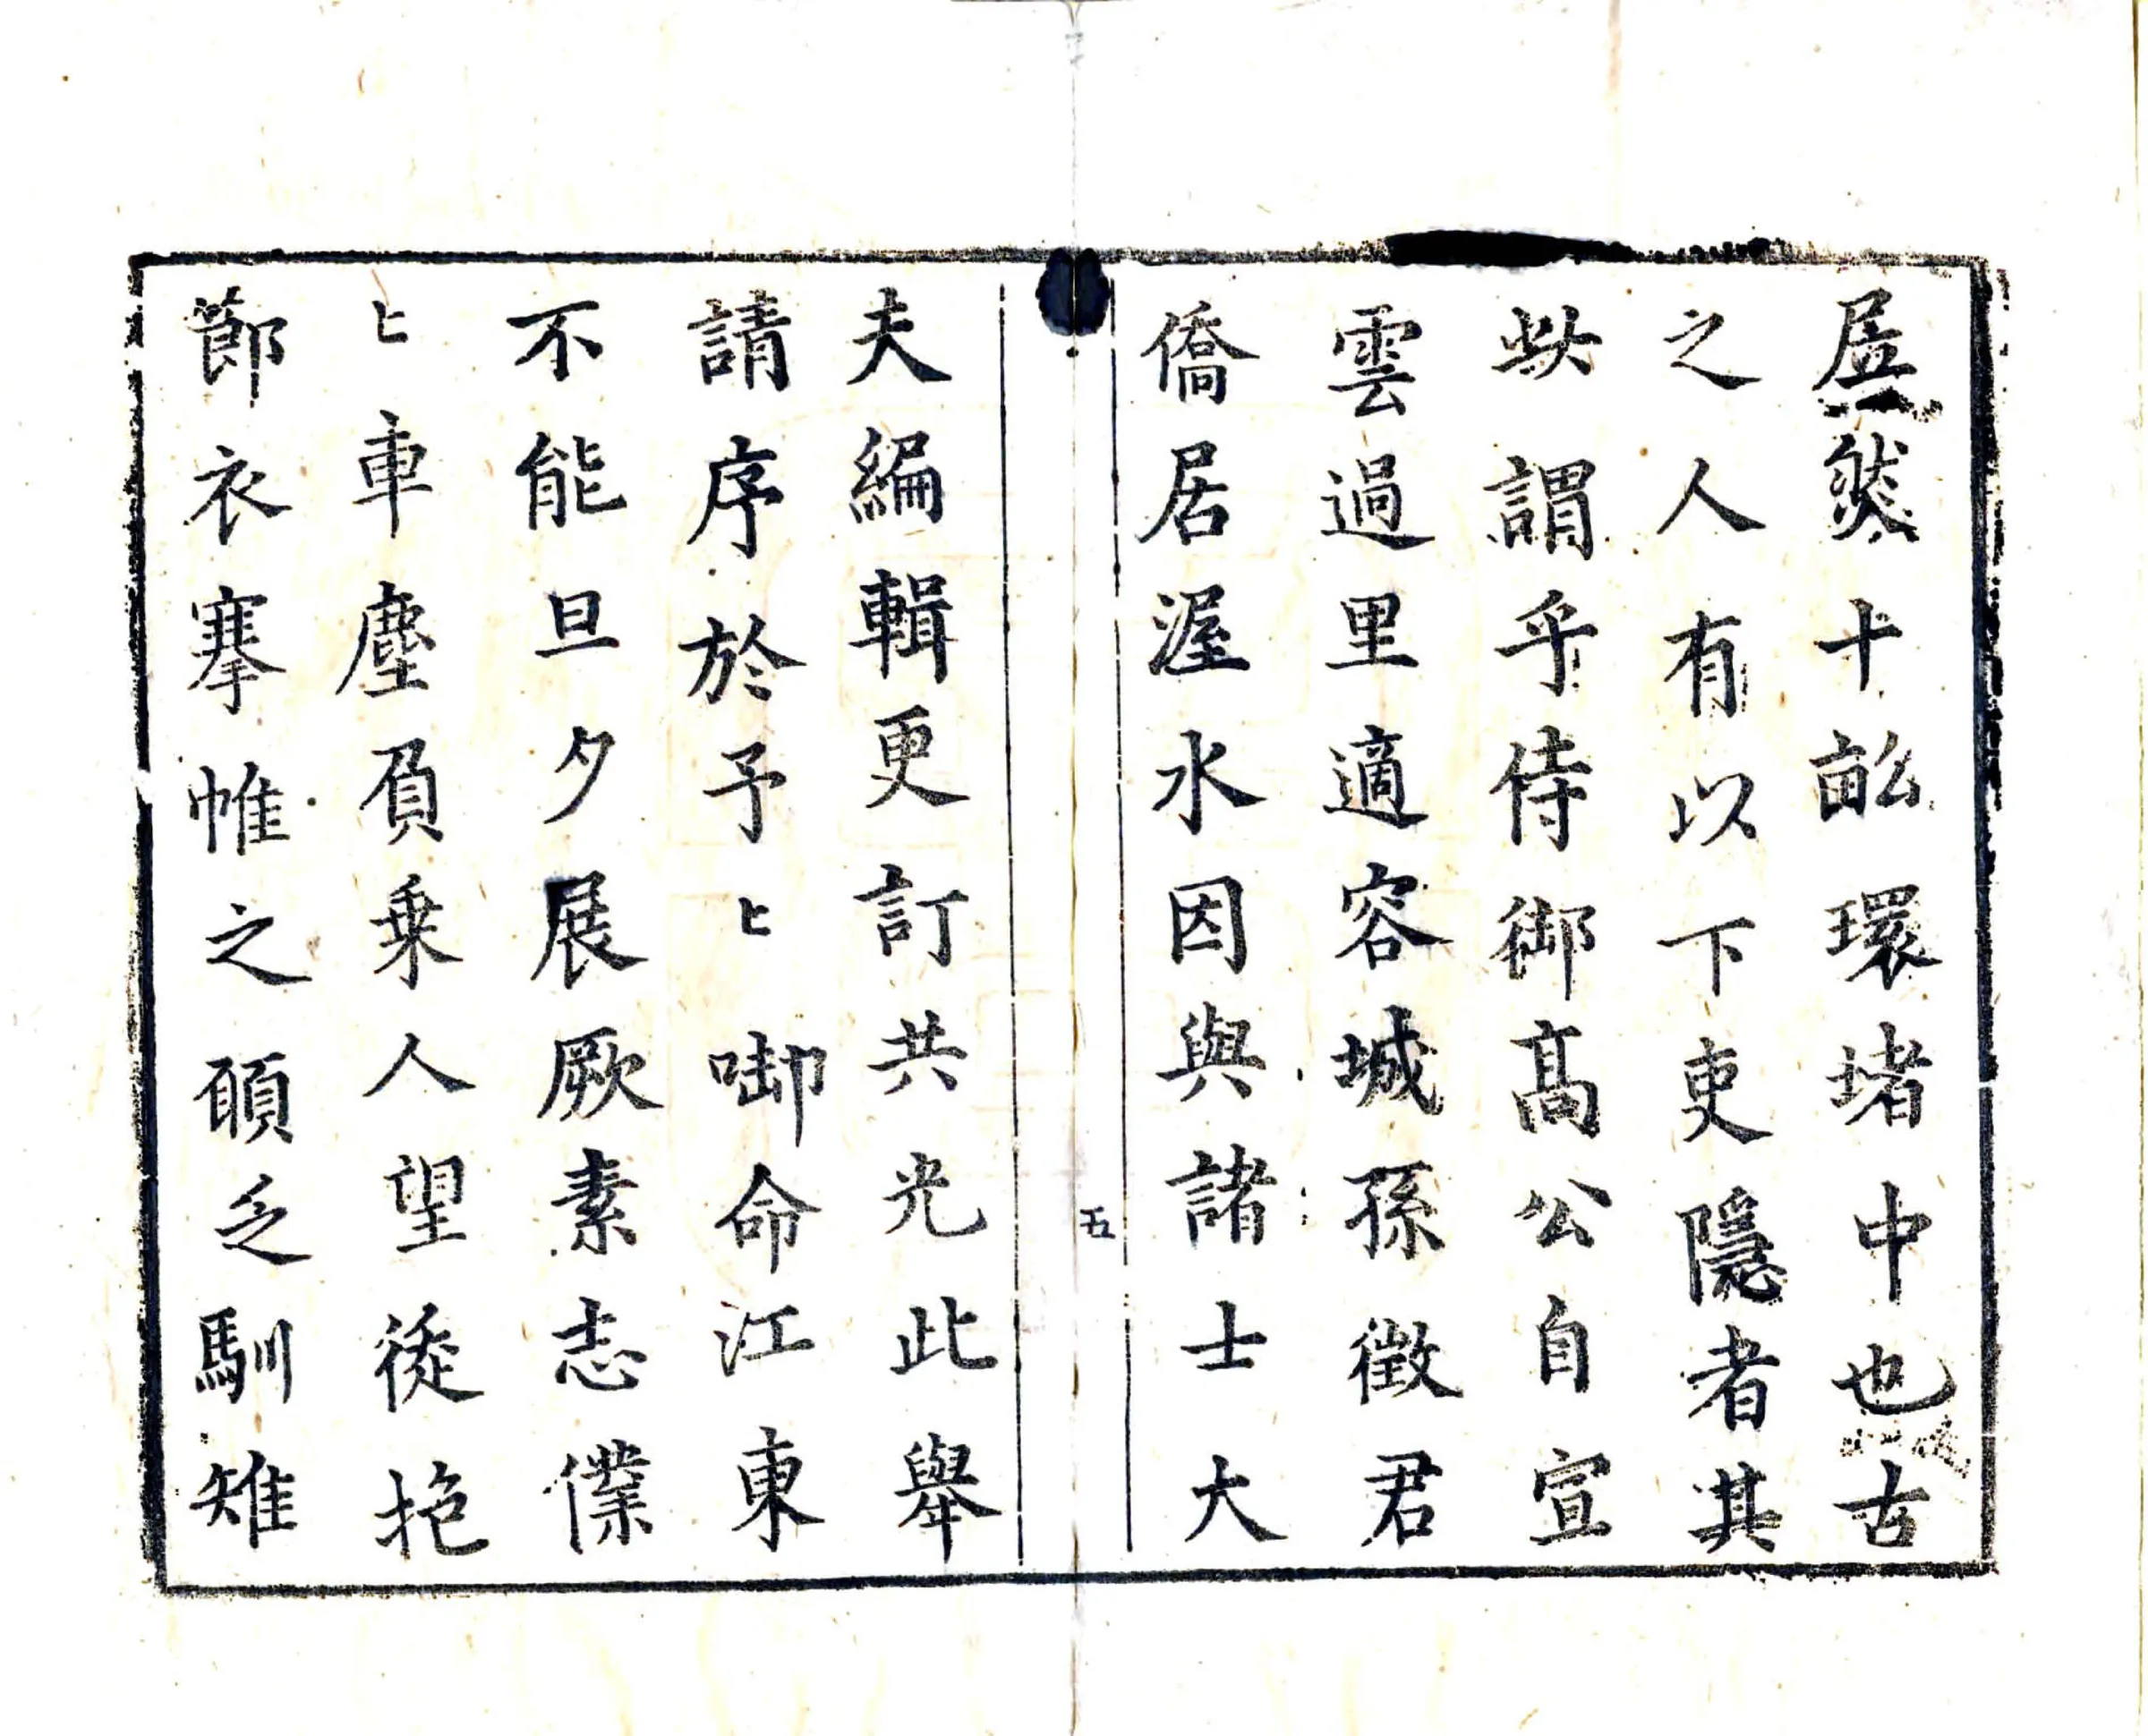 居然十畝環堵中也古
之人有以下吏隱者其
此謂乎侍御高公自宣
雲過里適容城孫徵君
僑居渥水因與諸士大
五
夫編輯更訂共光此舉
請序於予〻啣命江東
不能旦夕展厥素志僕
〻車塵負乗人望從抱
節衣搴帷之願乏馴雉